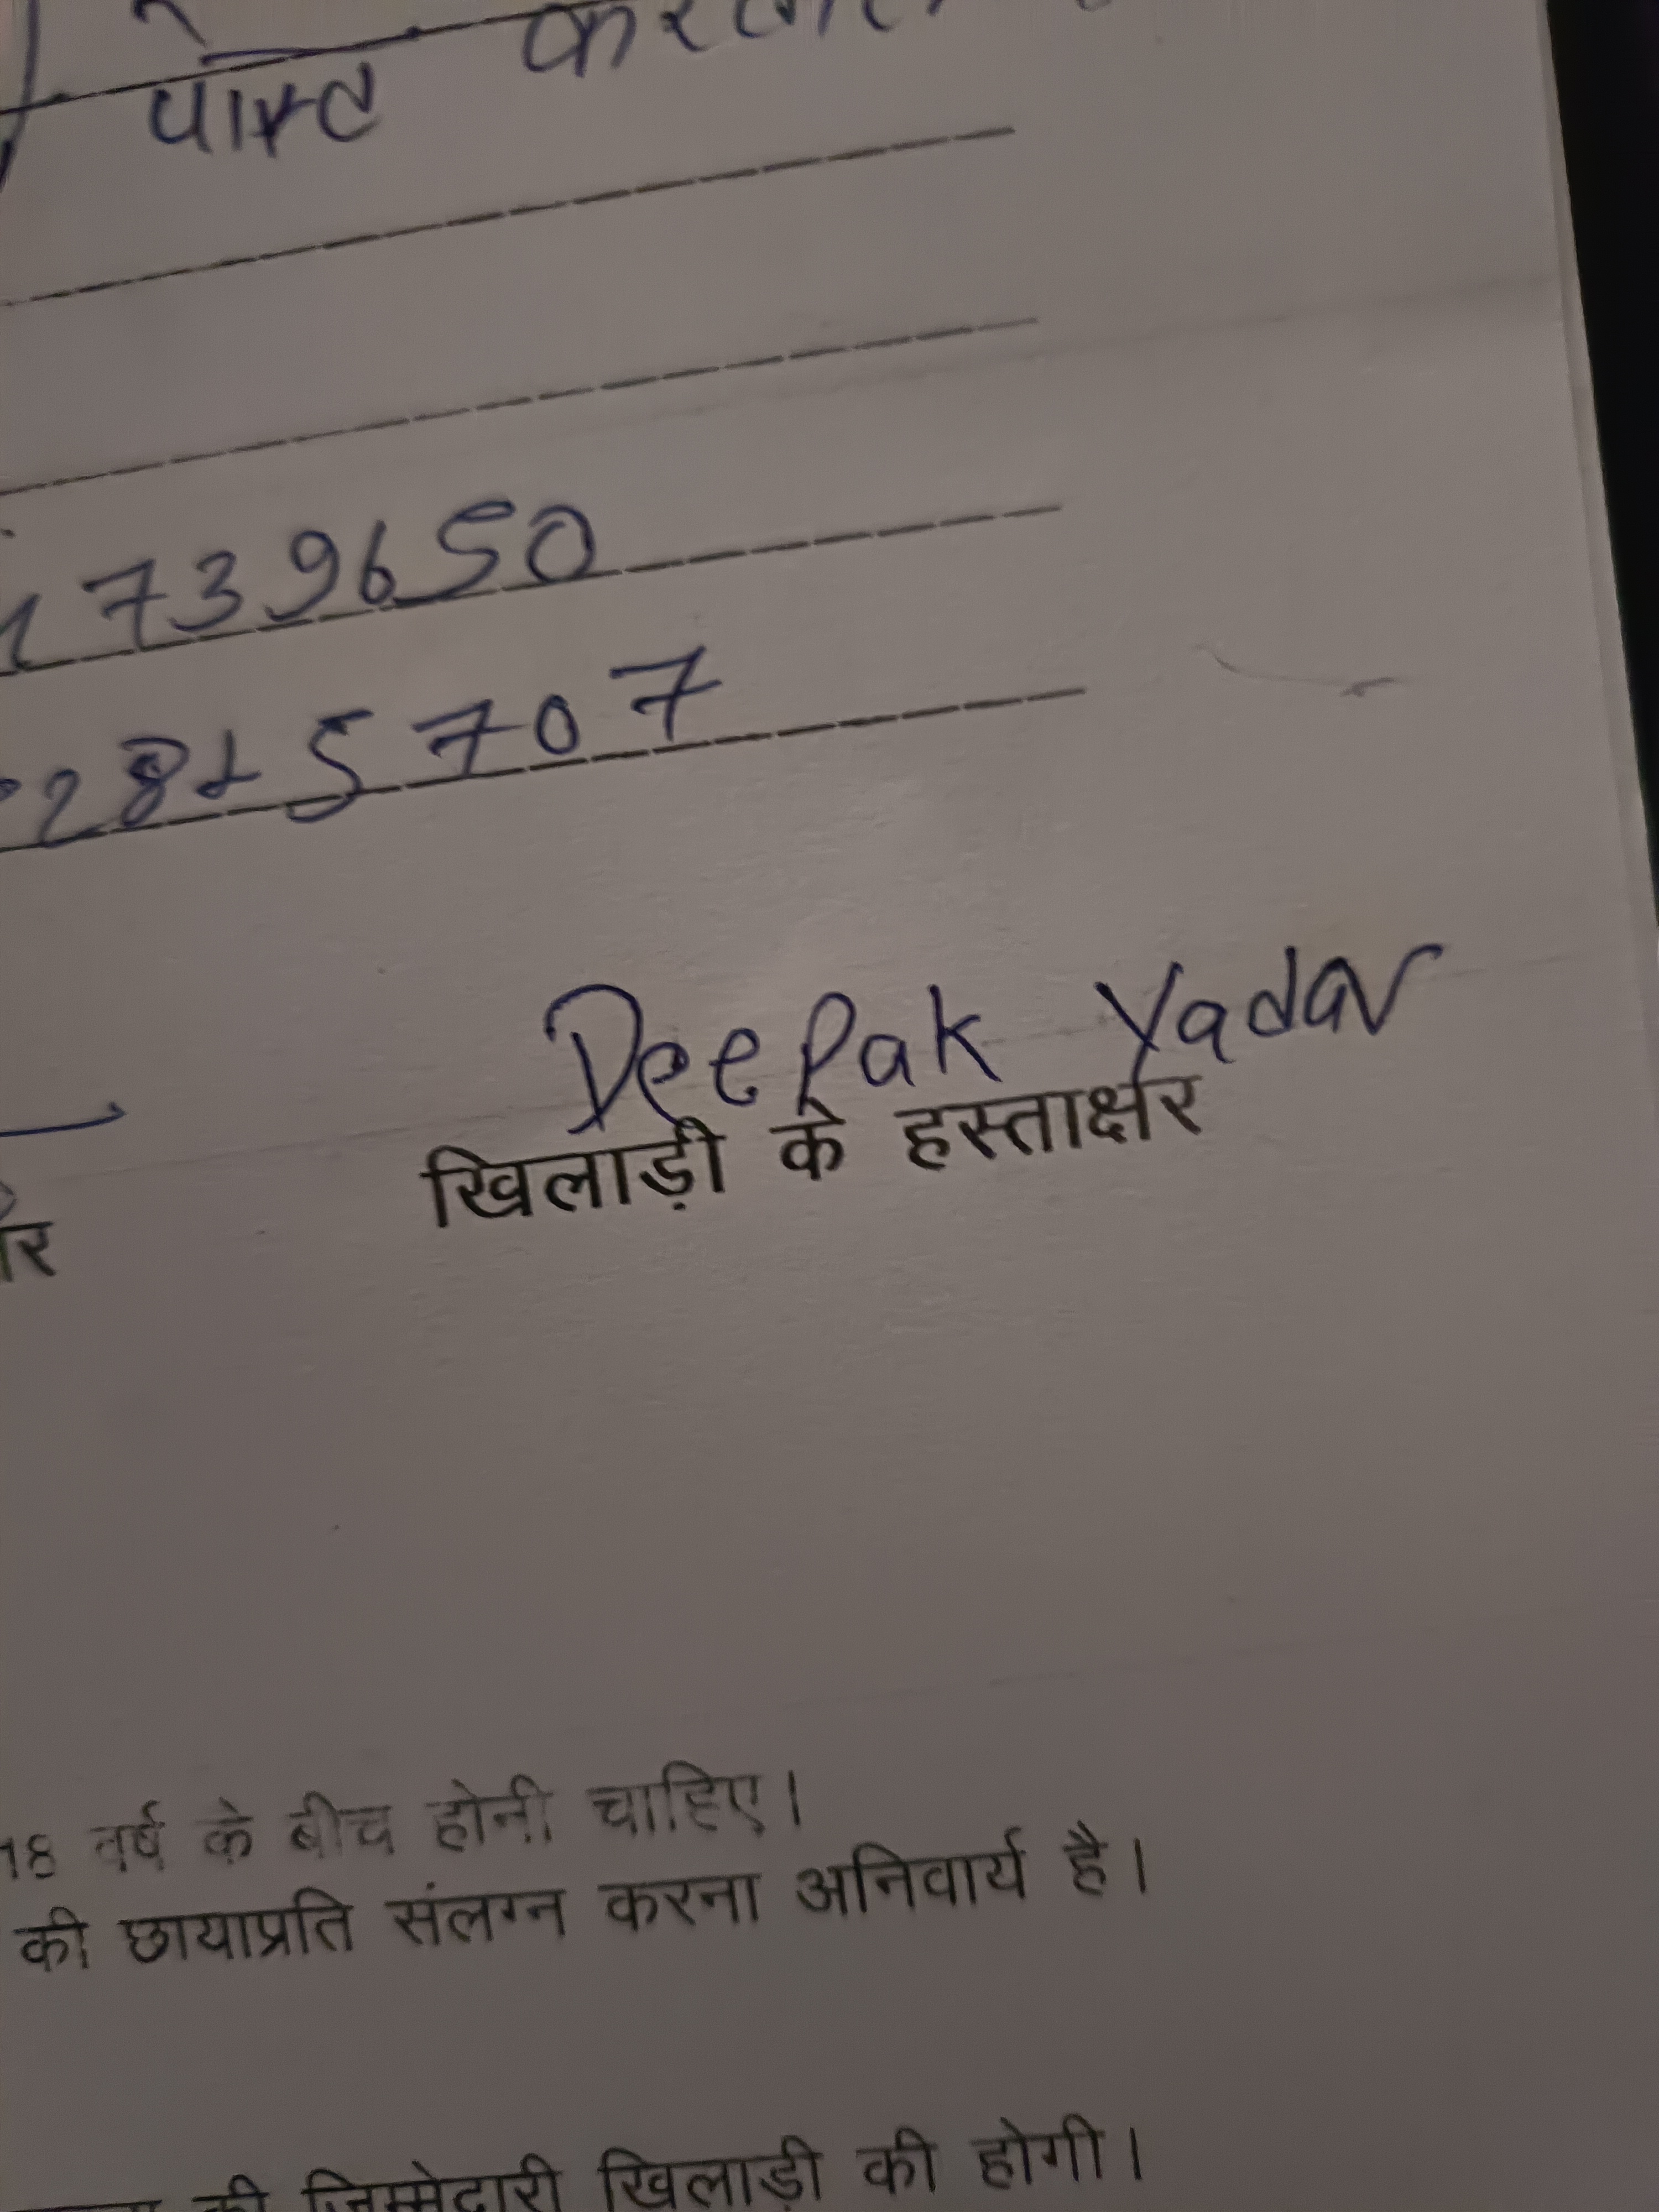 पोस्ट
1739650
2815707
Deepak Yadav
खिलाड़ी के हस्ताक्षर
18 वर्ष के बीच होनी चाहिए।
की छायाप्रति संलग्न करना अनिवार्य है।
की जिम्मेदारी खिलाड़ी की होगी।